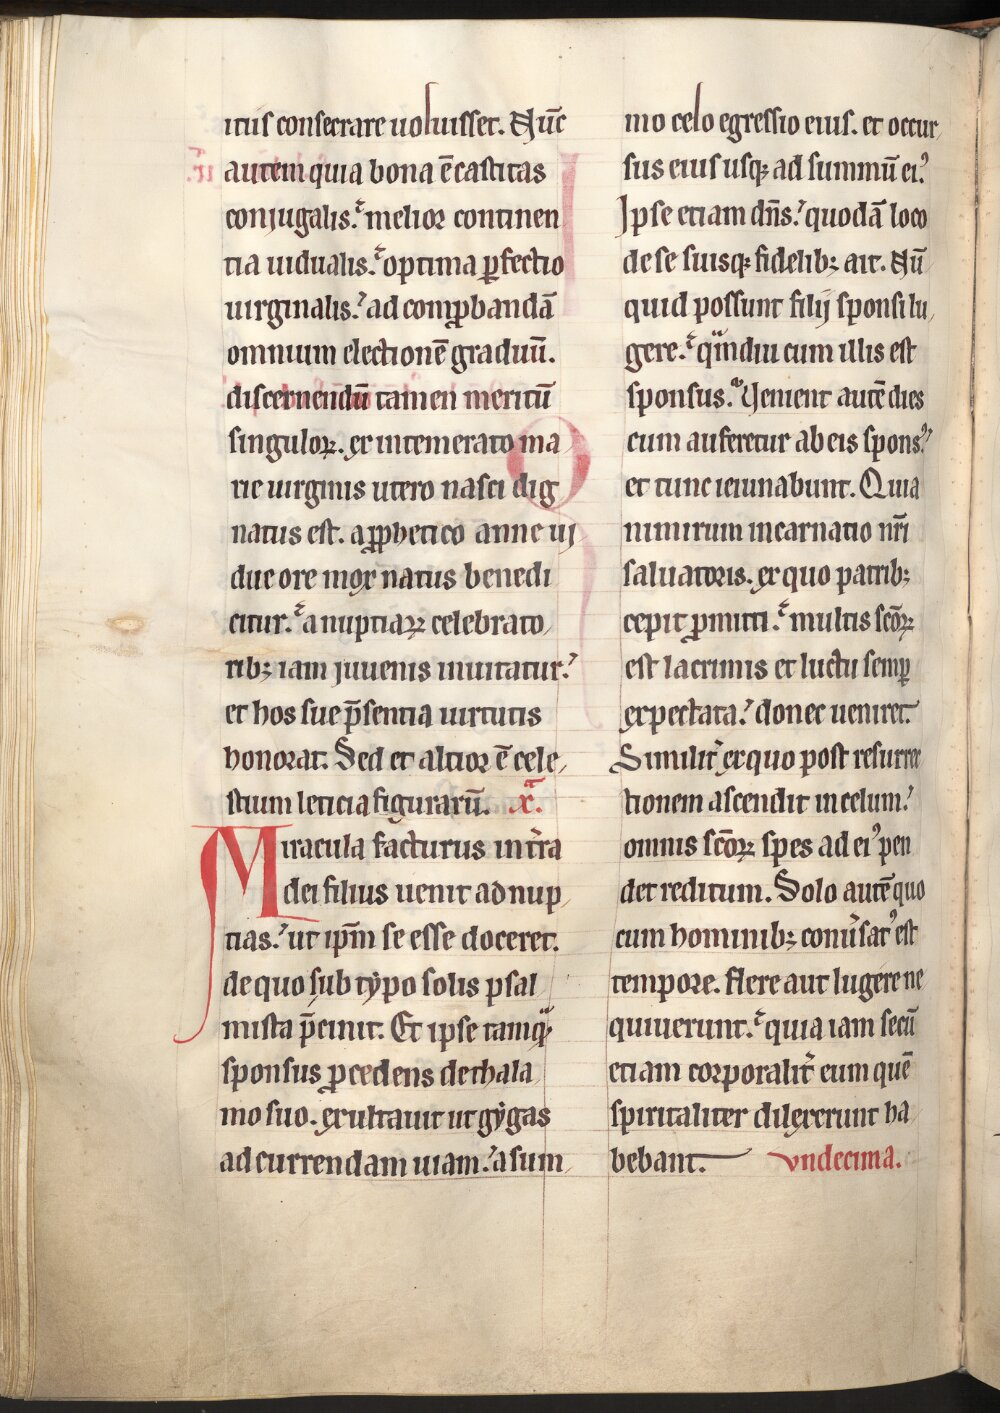 itus consecrare uoluisset. Nūc
autem quia bona ē castitas
conjugalis. melior continen
tia uidualis. optima ꝑfectio
uirginalis. ad comꝓbandā
omnium electionē graduū.
discernendū tamen meritū
singuloꝝ. ex intemerato ma
rie uirginis utero nasci dig
natus est. a ꝓphetico anne ui
due ore mox natus benedi
citur. a nuptiaꝝ celebrato
ribꝫ iam juuenis inuitatur.
et hos sue p̄sentia uirtutis
honorat. Sed et altior ē cele
stium leticia figurarū. xᵃ.
Miracula facturus in tr̄ra
dei filius uenit ad nup
tias. ut ip̄m se esse doceret.
de quo sub typo solis psal
mista p̄cinit. Et ipse tamqᵃ
sponsus ꝓcedens de thala
mo suo. exultauit ut gẏgas
ad currendam uiam. a sum
mo celo egressio eius. et occur
sus eius usqꝫ ad summū eiꝰ
Ipse etiam dn̄s. quodā loco
de se suisqꝫ fidelibꝫ ait. Nū
quid possunt filij sponsi lu
gere. qᵃmdiu cum illis est
sponsus. Uenient autē dies
cum auferetur ab eis sponsꝰ
et tunc ieiunabunt. Quia
nimirum incarnatio nr̄i
saluatoris. ex quo patribꝫ
cepit ꝓmitti. multis sc̄oꝝ
est lacrimis et luctu semꝑ
expectata. donec ueniret.
Similit̄ ex quo post resurre
ctionem ascendit in celum.
omnis sc̄oꝝ spes ad eiꝰ pen
det reditum. Solo autē quo
cum hominibꝫ conūsatꝰ est
tempore. flere aut lugere ne
quiuerunt. quia iam secū
etiam corporalit̄ eum quē
spiritaliter dilexerunt ha
bebant. vndecima.